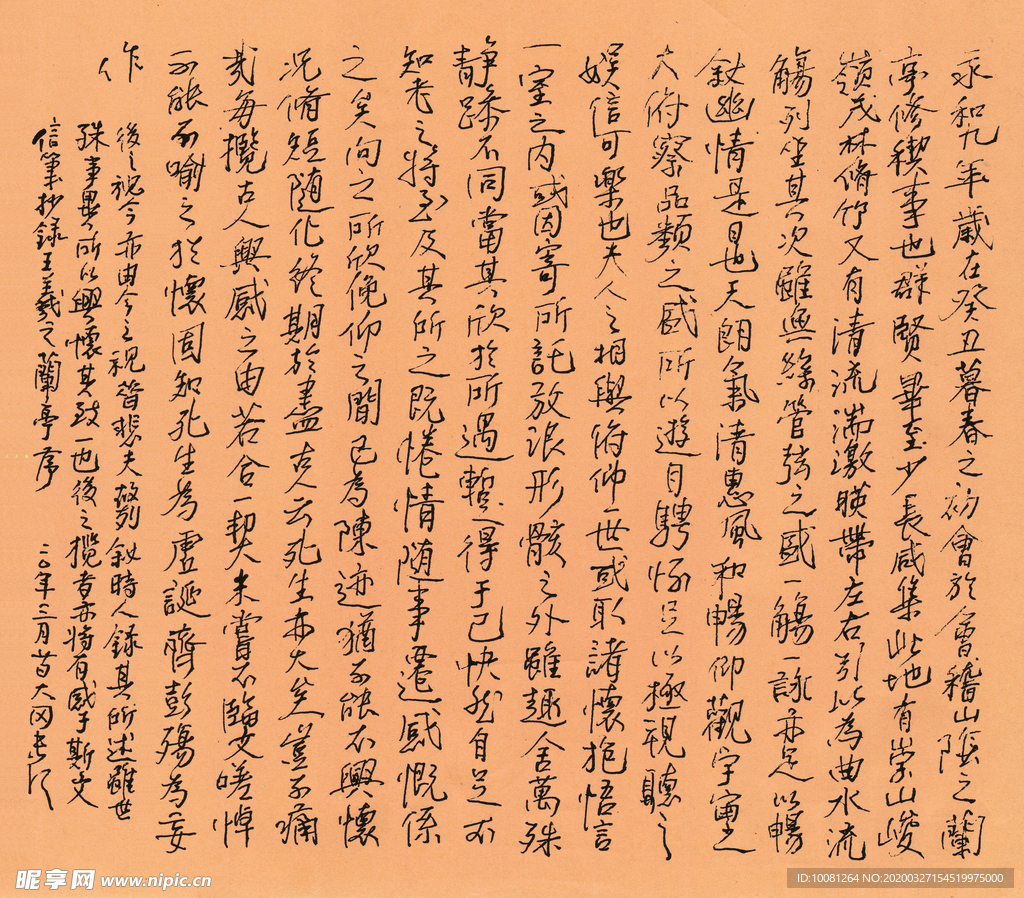 永和九年歲在癸丑暮春之初會於會稽山陰之蘭
亭修稧事也群賢畢至少長咸集此地有崇山峻
嶺茂林脩竹又有清流湍激暎帶左右引以為曲水流
觴列坐其次雖無絲管弦之盛一觴一詠亦足以暢
敘幽情是日也天朗氣清惠風和暢仰觀宇宙之
大俯察品類之盛所以遊目騁懷足以極視聽之
娛信可樂也夫人之相與俯仰一世或取諸懷抱悟言
一室之內或因寄所託放浪形骸之外雖趣舍萬殊
靜躁不同當其欣於所遇暫得于己快然自足不
知老之將至及其所之既惓情隨事遷感慨係
之矣向之所欣俛仰之間已為陳迹猶不能不興懷
況脩短隨化終期於盡古人云死生亦大矣豈不痛
哉每攬古人興感之由若合一契未嘗不臨文嗟悼
不能不喻之於懷固知死生為虛誕齊彭殤為妄
作
後之視今亦由今之視昔悲夫故列敘時人錄其所述雖世
殊事異所以興懷其致一也後之攬者亦將有感于斯文
信筆抄錄王羲之蘭亭序 二〇年三月 大冈
昵享网 www.nipic.cn
ID:10081264 NO:20200327154519975000